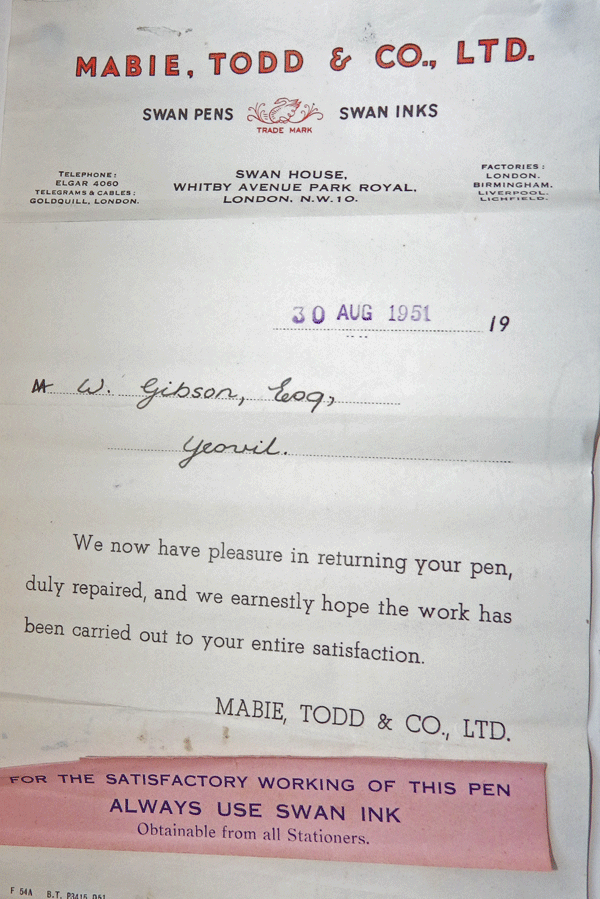 MABIE, TODD & CO., LTD.
SWAN PENS SWAN INKS
TRADE MARK
TELEPHONE:
ELGAR 4060
TELEGRAMS & CABLES:
GOLDQUILL, LONDON.
SWAN HOUSE,
WHITBY AVENUE PARK ROYAL,
LONDON. N.W.10.
FACTORIES:
LONDON.
BIRMINGHAM.
LIVERPOOL.
LICHFIELD.
30 AUG 1951 19
M W. Gibson, Esq,
Yeovil.
We now have pleasure in returning your pen,
duly repaired, and we earnestly hope the work has
been carried out to your entire satisfaction.
MABIE, TODD & CO., LTD.
FOR THE SATISFACTORY WORKING OF THIS PEN
ALWAYS USE SWAN INK
Obtainable from all Stationers.
F 54A B.T. P3415 D51